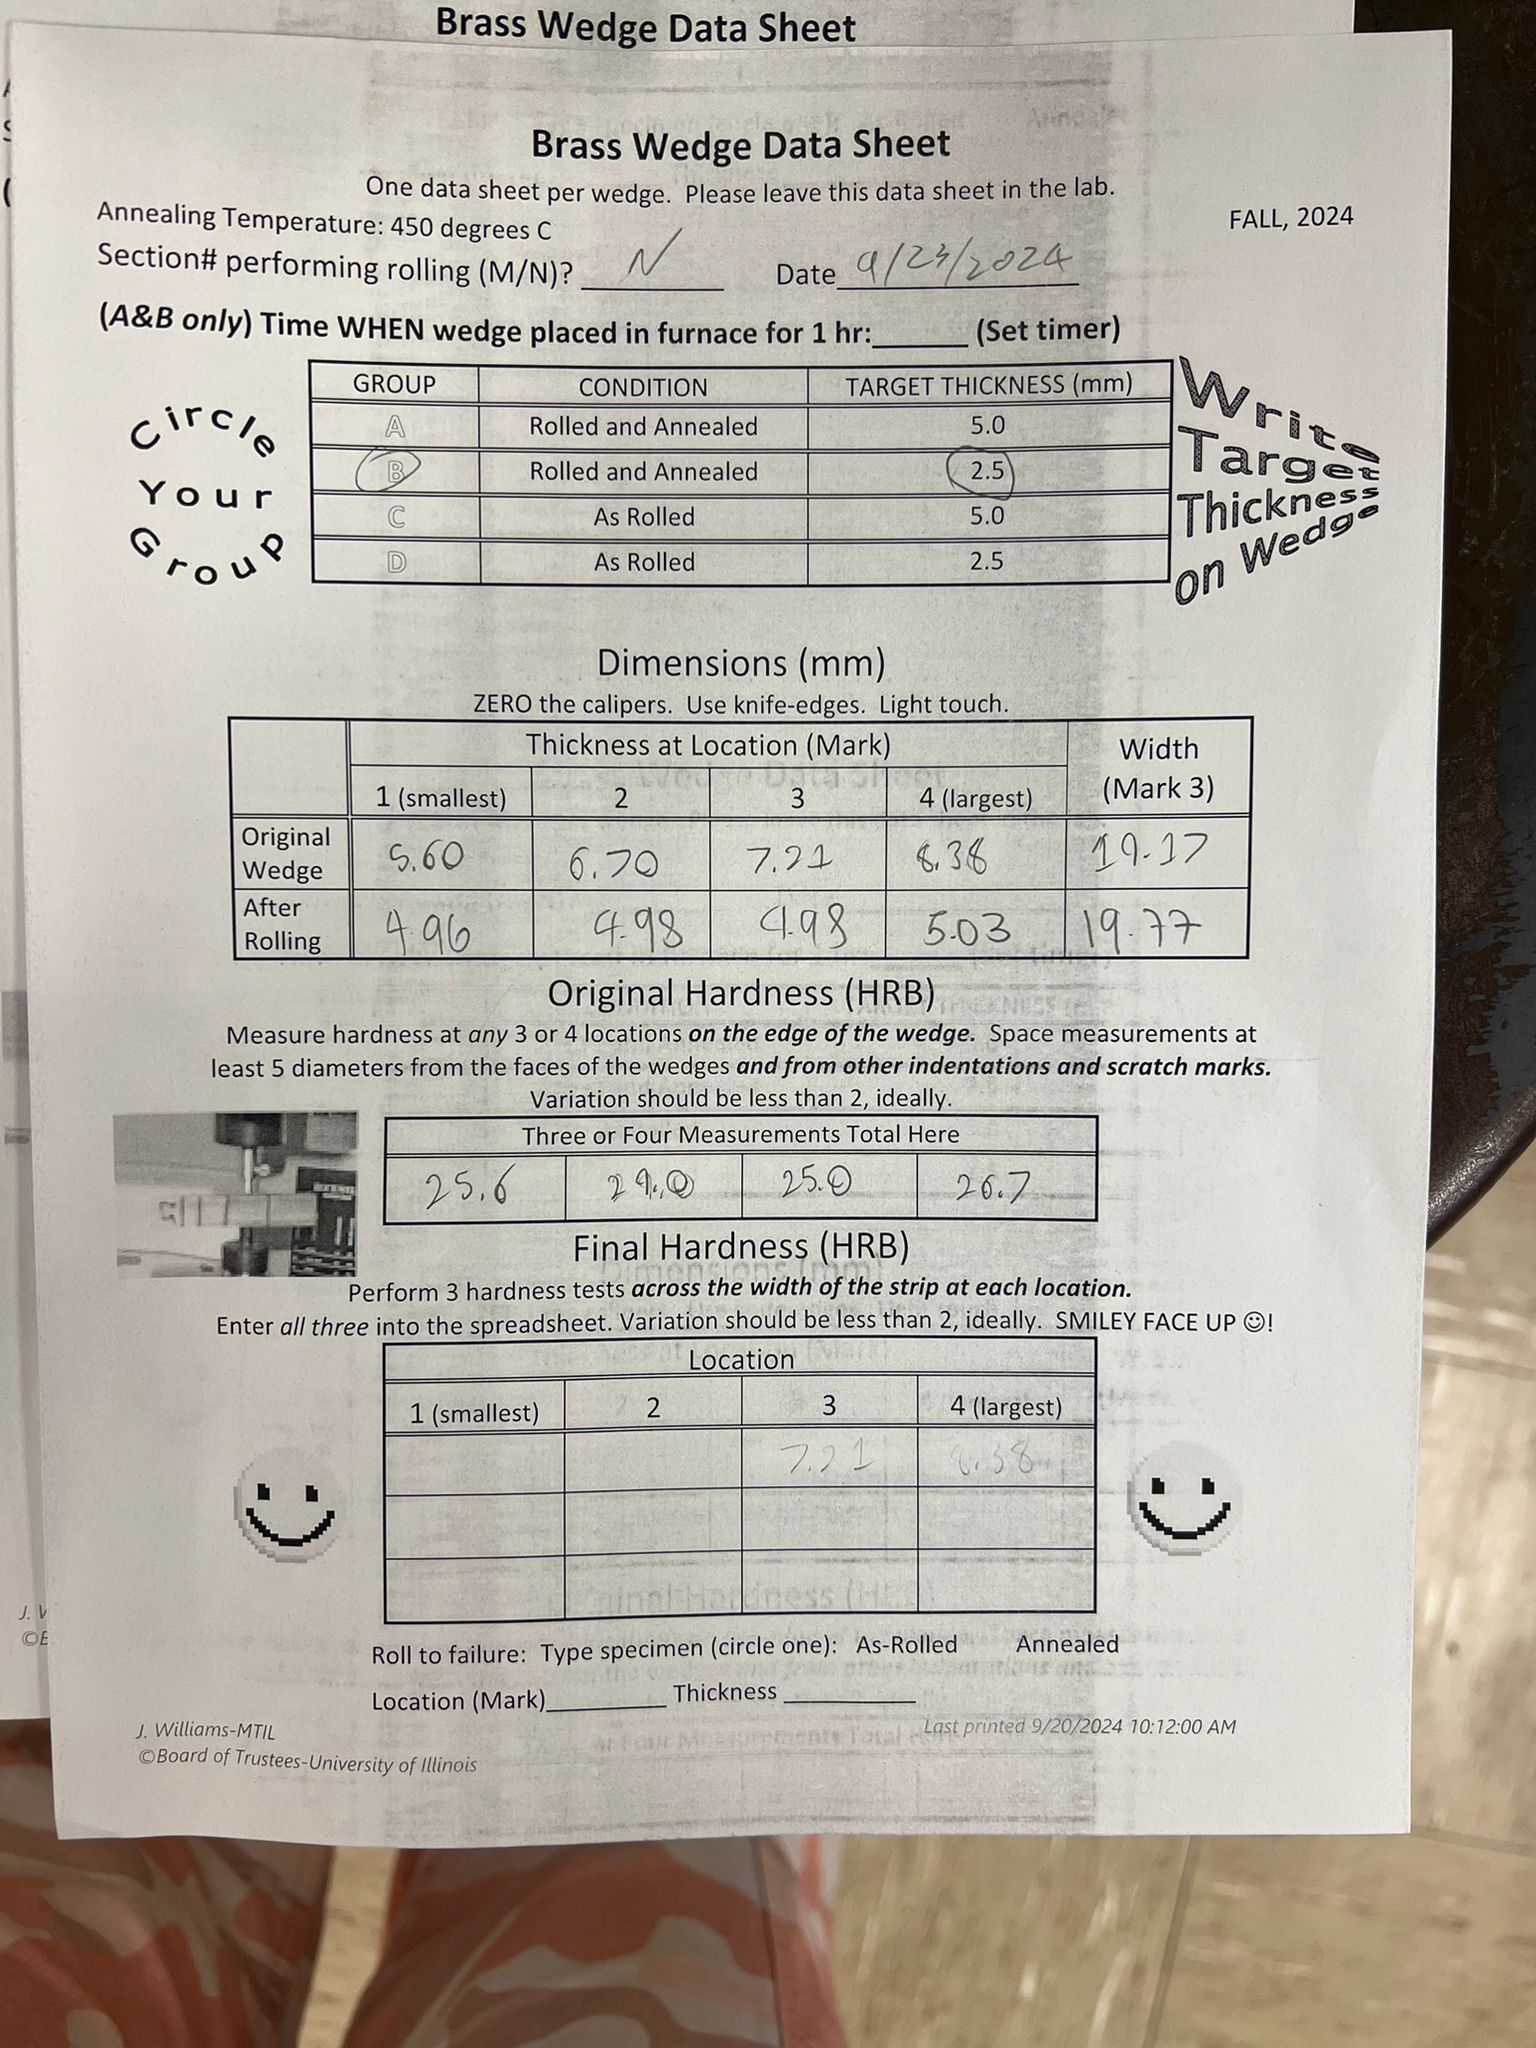 Brass Wedge Data Sheet
Brass Wedge Data Sheet
One data sheet per wedge. Please leave this data sheet in the lab.
Annealing Temperature: 450 degrees C
FALL, 2024
Section# performing rolling (M/N)? N Date 9/23/2024
(A&B only) Time WHEN wedge placed in furnace for 1 hr:______ (Set timer)
Circle Your Group
GROUP CONDITION TARGET THICKNESS (mm)
A Rolled and Annealed 5.0
B Rolled and Annealed 2.5
C As Rolled 5.0
D As Rolled 2.5
Write Target Thickness on Wedge
Dimensions (mm)
ZERO the calipers. Use knife-edges. Light touch.
Thickness at Location (Mark) Width (Mark 3)
1 (smallest) 2 3 4 (largest)
Original Wedge 5.60 6.70 7.21 8.38 19.17
After Rolling 4.96 4.98 4.98 5.03 19.77
Original Hardness (HRB)
Measure hardness at any 3 or 4 locations on the edge of the wedge. Space measurements at
least 5 diameters from the faces of the wedges and from other indentations and scratch marks.
Variation should be less than 2, ideally.
Three or Four Measurements Total Here
25.6 25.0 26.7
Final Hardness (HRB)
Perform 3 hardness tests across the width of the strip at each location.
Enter all three into the spreadsheet. Variation should be less than 2, ideally. SMILEY FACE UP ☺!
Location
1 (smallest) 2 3 4 (largest)
7.21 8.38
Roll to failure: Type specimen (circle one): As-Rolled Annealed
Location (Mark)_________ Thickness __________
J. Williams-MTIL
Last printed 9/20/2024 10:12:00 AM
©Board of Trustees-University of Illinois